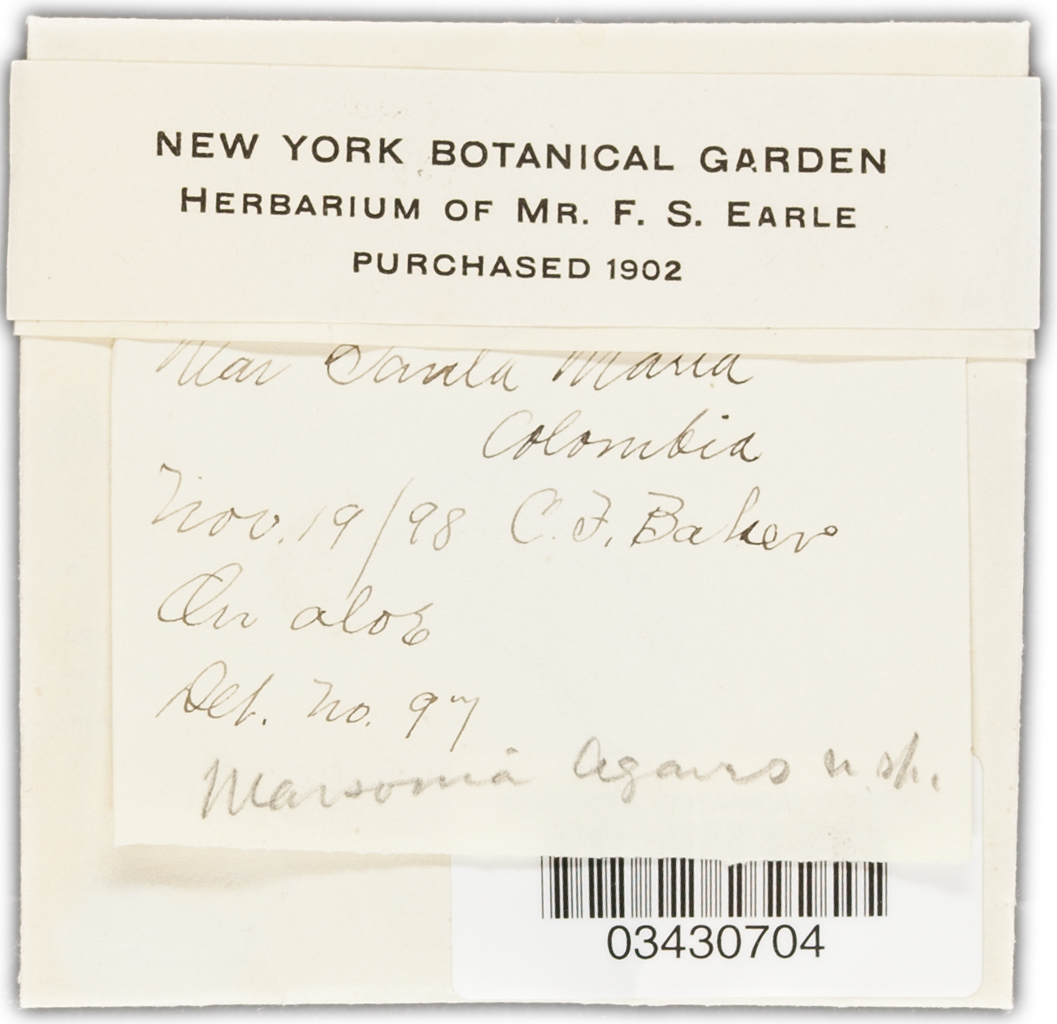 NEW YORK BOTANICAL GARDEN
HERBARIUM OF MR. F. S. EARLE
PURCHASED 1902
Santa Maria
Colombia
Nov. 19/98 C. F. Baker
On aloe
Det. No. 97
Marsonia n. sp.
03430704